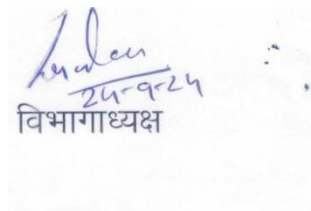 24-9-24
विभागाध्यक्ष